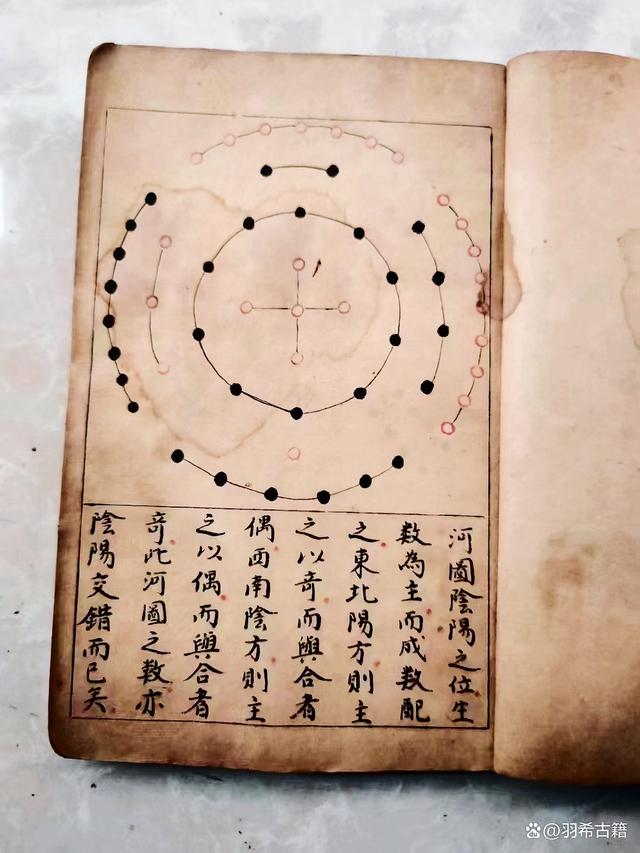 河圖陰陽之位生
数為主而成数配
之東北陽方則主
之以竒而與合者
偶西南陰方則主
之以偶而與合者
竒此河圖之数亦
陰陽交錯而已矣
@羽希古籍